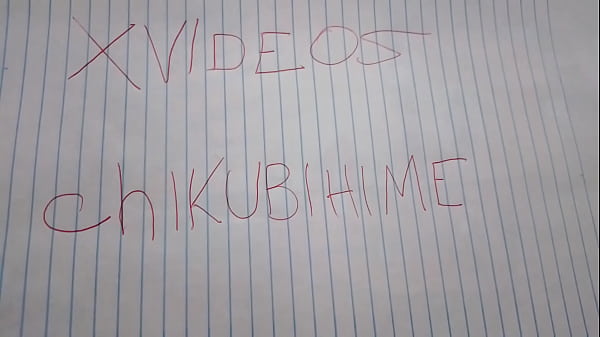 XVIDEOS
chIKUBIHIME